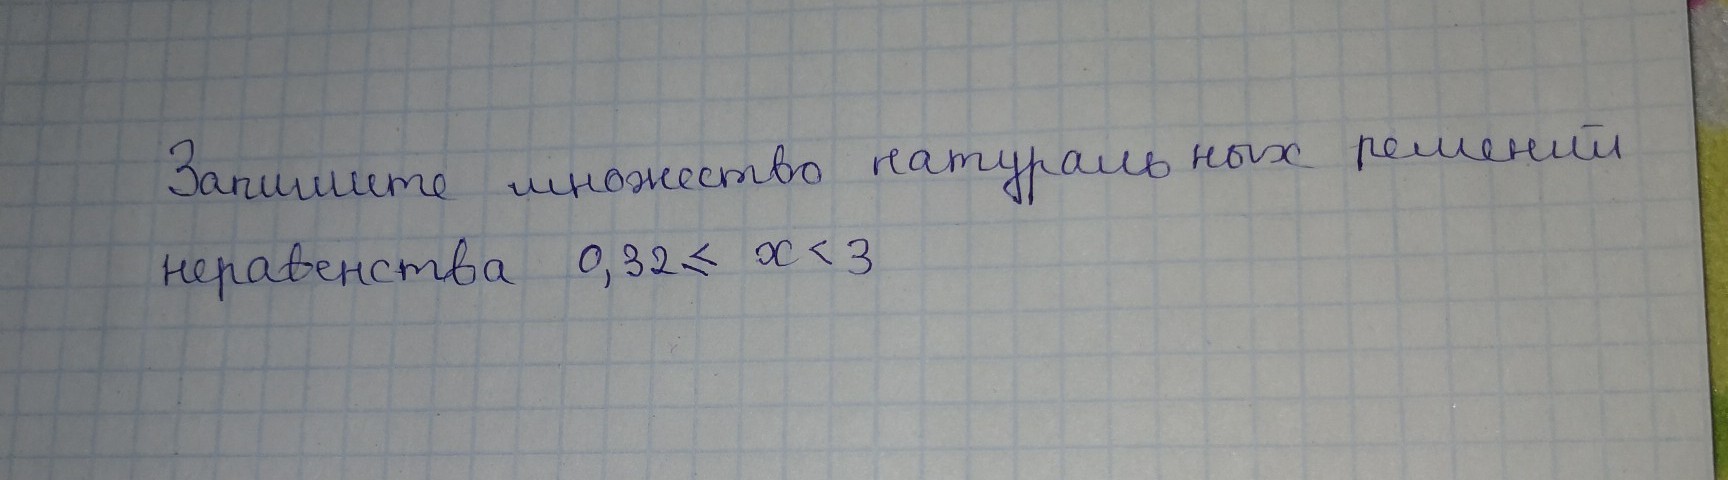 Запишите множество натуральных решений
неравенства 0,32 ≤ x < 3